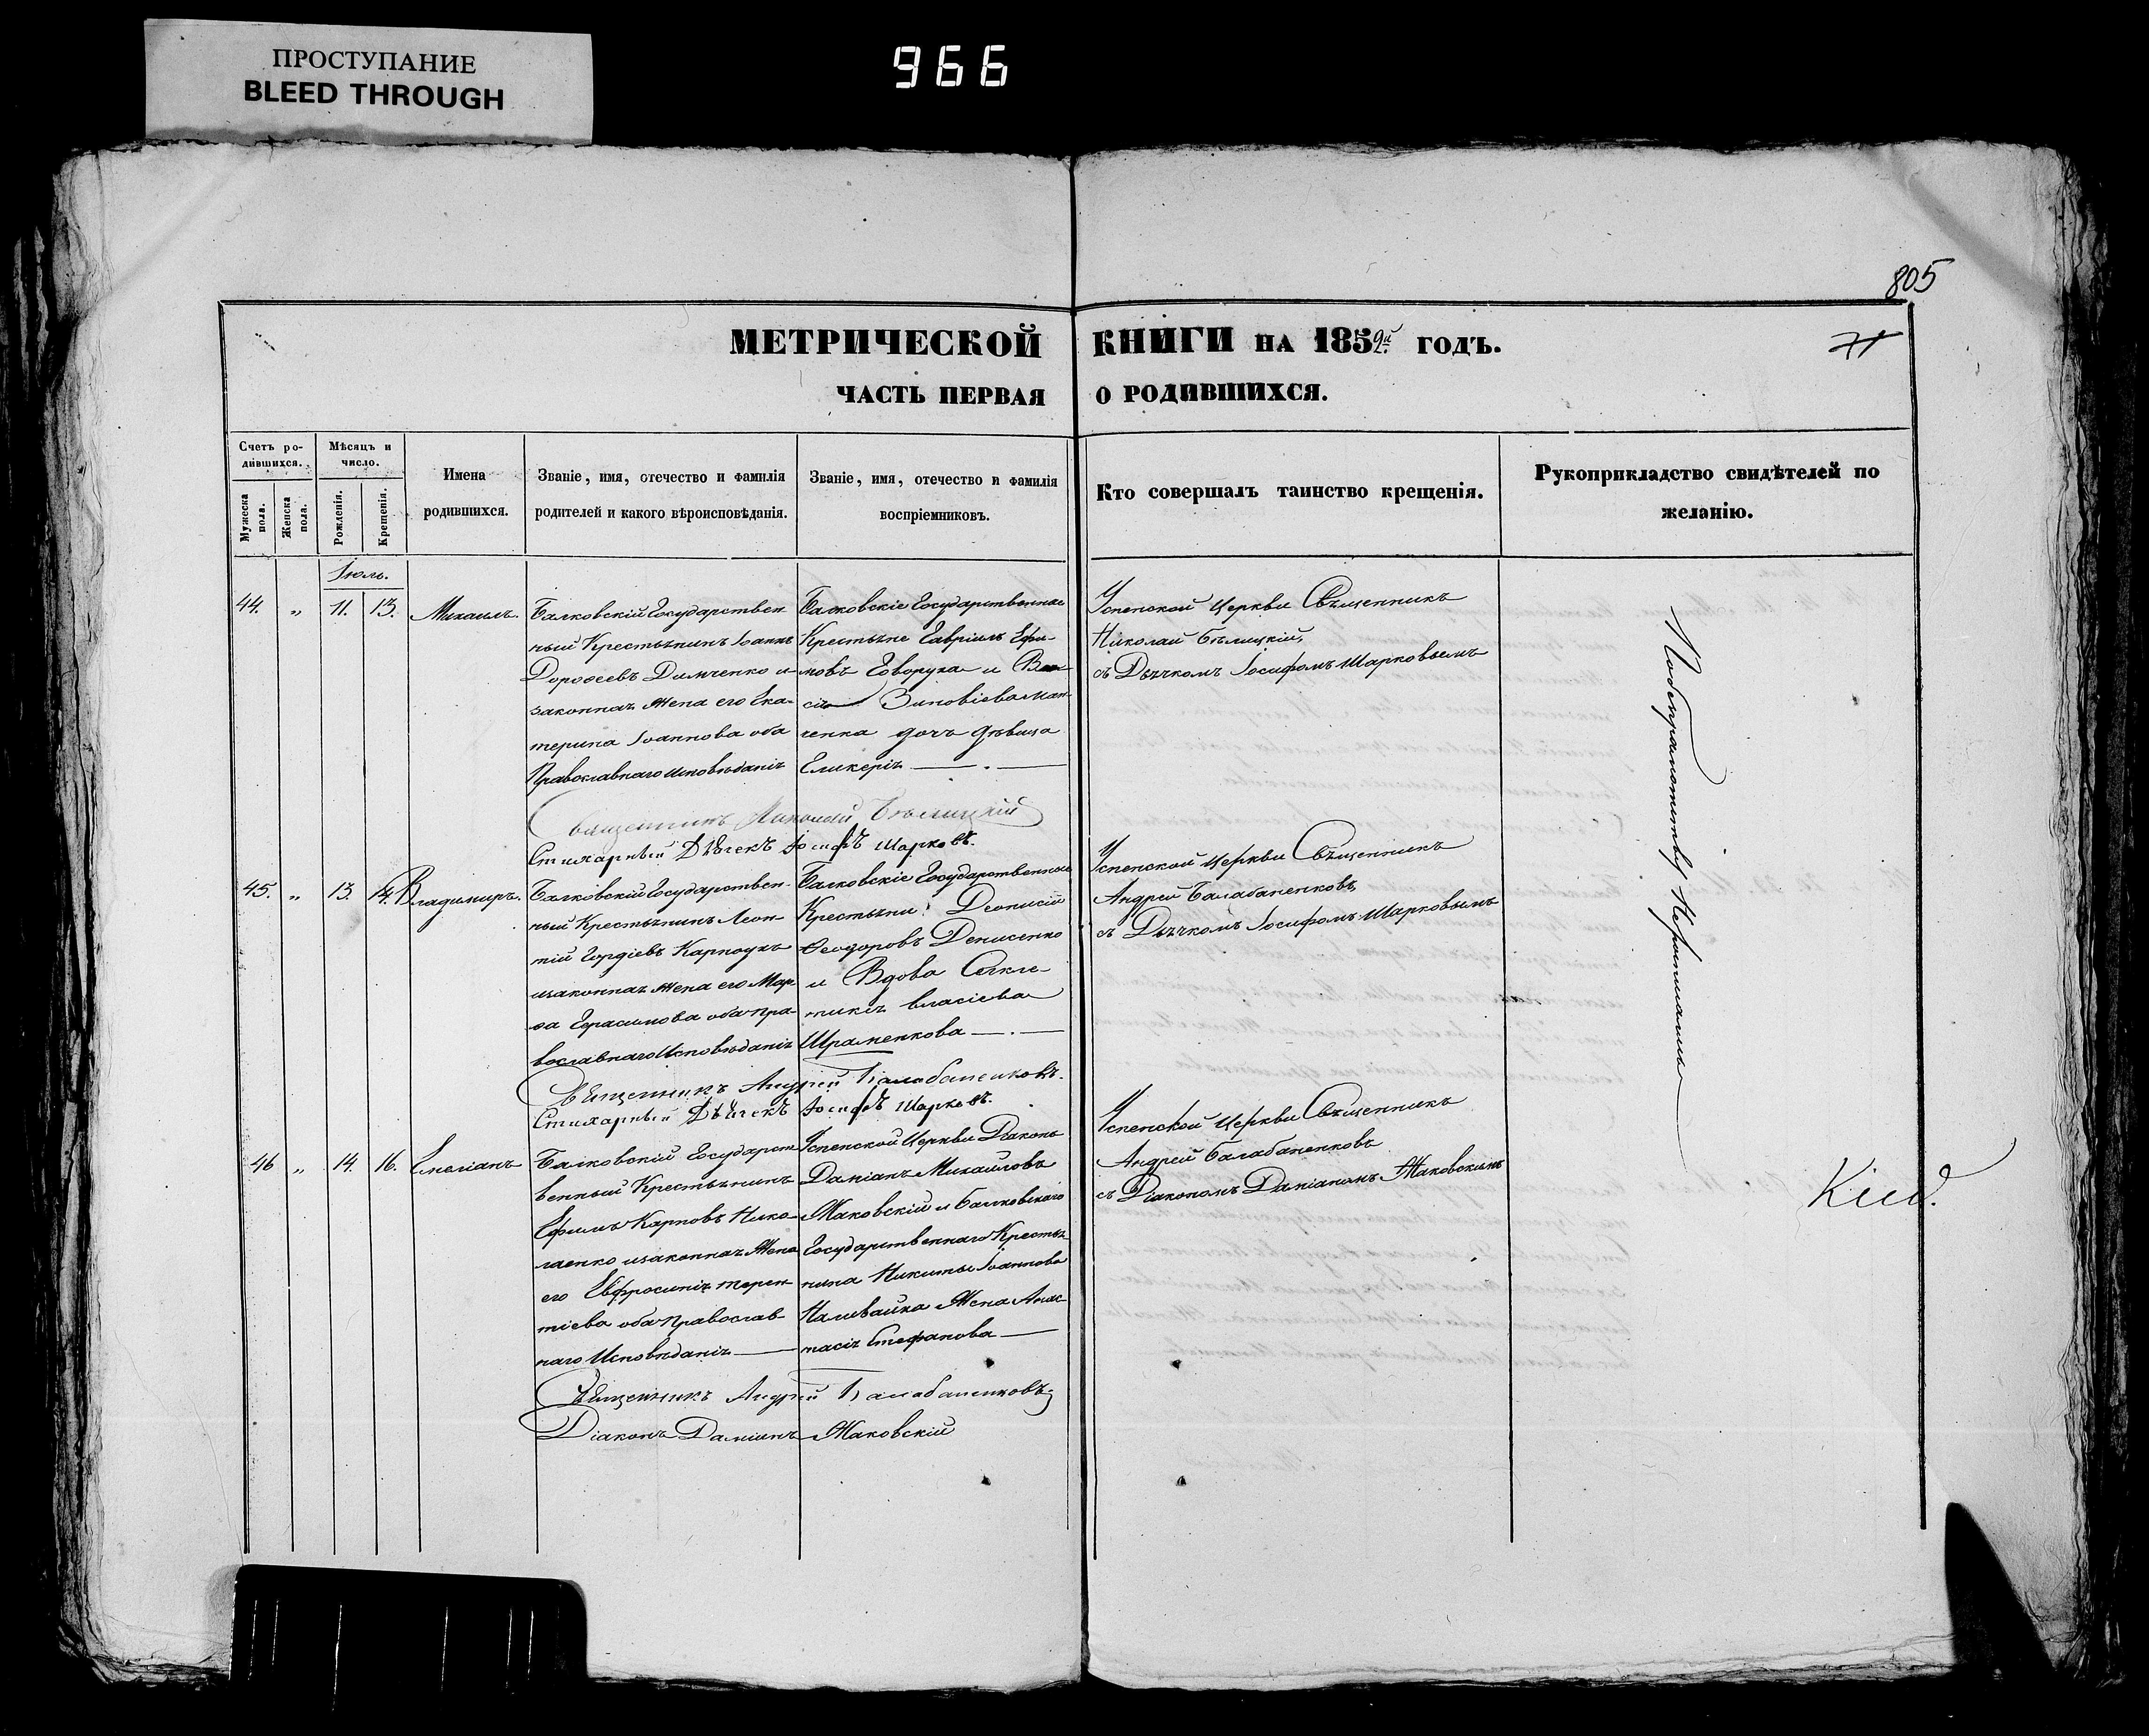 ПРОСТУПАНИЕ
BLEED THROUGH
966
805
71
МЕТРИЧЕСКОЙ КНИГИ НА 1852й ГОДЪ.
ЧАСТЬ ПЕРВАЯ О РОДИВШИХСЯ.
Счетъ ро-
дившихся.
Мужеска пола.
Женска пола.
Мѣсяцъ и
число.
Рожденія.
Крещенія.
Имена
родившихся.
Званіе, имя, отечество и фамилія
родителей и какого вѣроисповѣданія.
Званіе, имя, отечество и фамилія
воспріемниковъ.
Кто совершалъ таинство крещенія.
Рукоприкладство свидѣтелей по
желанію.
Іюль.
44. „ 11. 13. Михаилъ.
Балковскій Государствен
ный Крестьянинъ Іоаннъ
Дороѳеевъ Димченко и
законная жена его Ека-
терина Іоаннова оба
Православнаго исповѣданія
Балковскіе Государственные
Крестьяне Гавріилъ Ефи-
мовъ Говоруха и
Зиновіева
ченка дочь дѣвица
Гликерія
Успенской церкви Священникъ
Николай Бѣлицкій,
съ Дьячкомъ Іосифомъ Шарковымъ
Священникъ Николай Бѣлицкій
Стихарный Дьячекъ Іосифъ Шарковъ.
45. „ 13. 14. Владимиръ.
Балковскій Государствен-
ный Крестьянинъ Леон-
тій Гордіевъ Карпоухъ
изаконная жена его Мар
ѳа Герасимова оба пра-
вославнаго Исповѣданія
Балковскіе Государственные
Крестьяни: Діонисій
Ѳеодоровъ Денисенко
и Вдова Сѵнкли-
тикія Власіева
Шраменкова
Успенской церкви Священникъ
Андрей Балабаненковъ,
съ Дьячкомъ Іосифомъ Шарковымъ
Священникъ Андрей Балабаненковъ.
Стихарный Дьячекъ Іосифъ Шарковъ.
46 „ 14. 16. Емеліанъ
Балковскій Государст
венный Крестьянинъ
Ефимъ Карповъ Нико-
лаенко изаконная Жена
его Евфросинія Терен-
тіева оба Православ-
наго Исповѣданія
Успенской Церкви Діаконъ
Даміанъ Михайловъ
Жаковскій и Балковскаго
Государственнаго Крестья-
нина Никиты Іоаннова
Наливайка Жена Анас-
тасія Стефанова
Успенской церкви Священникъ
Андрей Балабаненковъ
съ Діакономъ Даміаномъ Жаковскимъ
Священникъ Андрей Балабаненковъ
Діаконъ Даміанъ Жаковскій